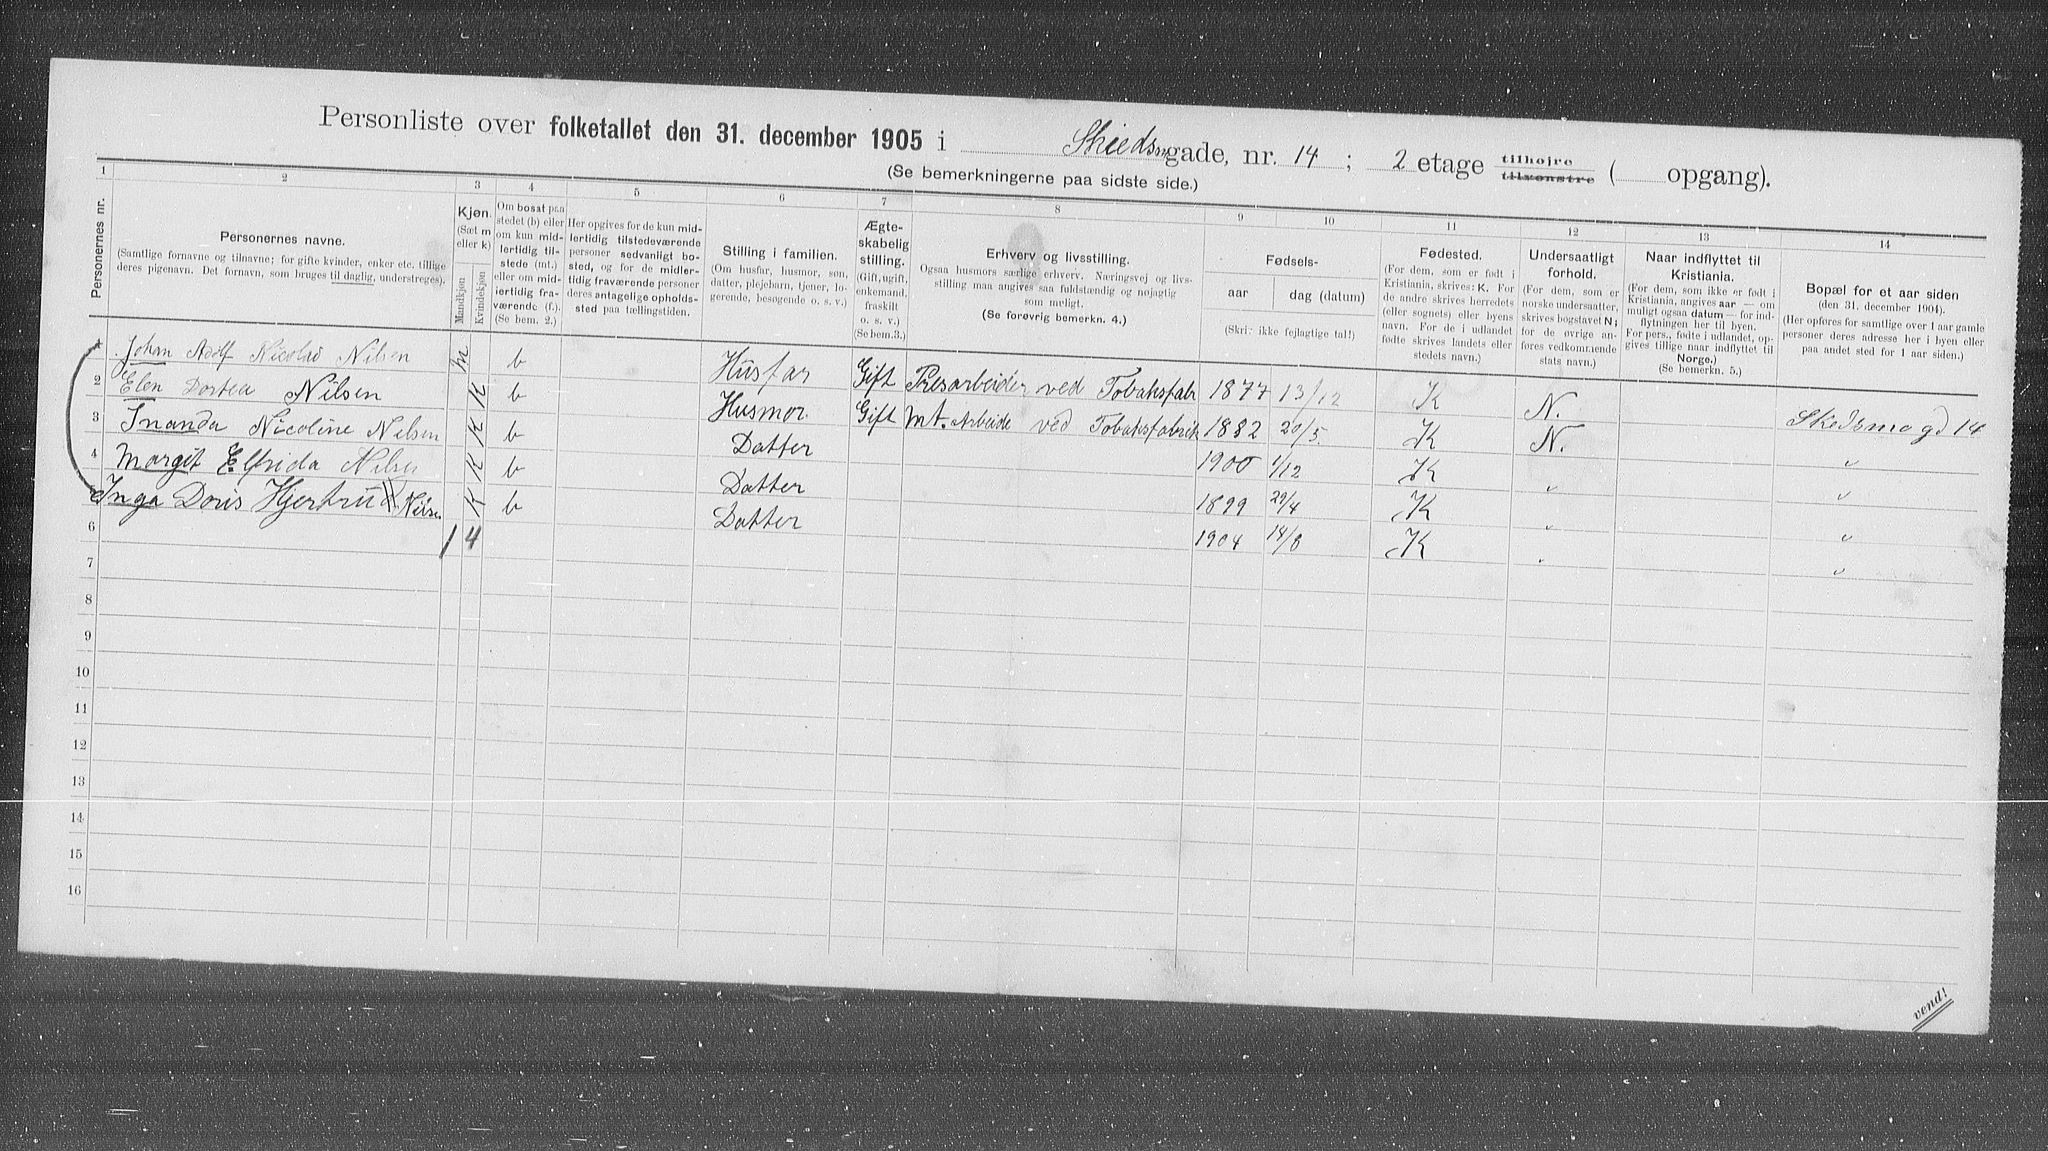 Personliste over folketallet den 31. december 1905 i Skiedsmgade, nr. 14; 2 etage tilhøire tilvenstre ( opgang).
(Se bemerkningerne paa sidste side.)
1 2 3 4 5 6 7 8 9 10 11 12 13 14
Personernes nr.
Personernes navne.
(Samtlige fornavne og tilnavne; for gifte kvinder, enker etc. tillige
deres pigenavn. Det fornavn, som bruges til daglig, understreges).
Kjøn.
(Sæt m
eller k)
Mandkjøn
Kvindekjøn
Om bosat paa
stedet (b) eller
om kun mid-
lertidig til-
stede (mt.)
eller om mid-
lertidig fra-
værende (f.).
(Se bem. 2.)
Her opgives for de kun mid-
lertidig tilstedeværende
personer sedvanligt bo-
sted, og for de midler-
tidig fraværende personer
deres antagelige opholds-
sted paa tællingstiden.
Stilling i familien.
(Om husfar, husmor, søn,
datter, plejebarn, tjener, lo-
gerende, besøgende o. s. v.)
Ægte-
skabelig
stilling.
(Gift, ugift,
enkemand,
fraskilt
o. s. v.)
(Se bem. 3.)
Erhverv og livsstilling.
Ogsaa husmors særlige erhverv. Næringsvej og livs-
stilling maa angives saa fuldstændig og nøjagtig
som muligt.
(Se forøvrig bemerkn. 4.)
Fødsels-
aar dag (datum)
(Skriv ikke fejlagtige tal!)
Fødested.
(For dem, som er født i
Kristiania, skrives: K. For
de andre skrives herredets
(eller sognets) eller byens
navn. For de i udlandet
fødte skrives landets eller
stedets navn.)
Undersaatligt
forhold.
(For dem, som er
norske undersaatter,
skrives bogstavet N;
for de øvrige an-
føres vedkommende
stats navn.)
Naar indflyttet til
Kristiania.
(For dem, som ikke er født i
Kristiania, angives aar — om
muligt ogsaa datum — for ind-
flytningen her til byen.
For pers., fødte i udlandet, op-
gives tillige naar indflyttet til
Norge.)
(Se bemerkn. 5.)
Bopæl for et aar siden
(den 31. december 1904).
(Her opføres for samtlige over 1 aar gamle
personer deres adresse her i byen eller
paa andet sted for 1 aar siden.)
Johan Adolf Nicolai Nilsen m b Husfar Gift Presarbeider ved Tobaksfabr 1877 13/12 K N. Skedsmogd 14
2 Elen Dortea Nilsen K b Husmor Gift mt. Arbeide ved Tobaksfabrik 1882 20/5 K N. "
3 Inanda Nicoline Nilsen K b Datter 1900 1/12 K " "
4 Margit Elfrida Nilsen K b Datter 1899 29/4 K " "
Inga Doris Hjertrud Nilsen K b Datter 1904 14/8 K " "
6 1 4
7
8
9
10
11
12
13
14
15
16
vend!